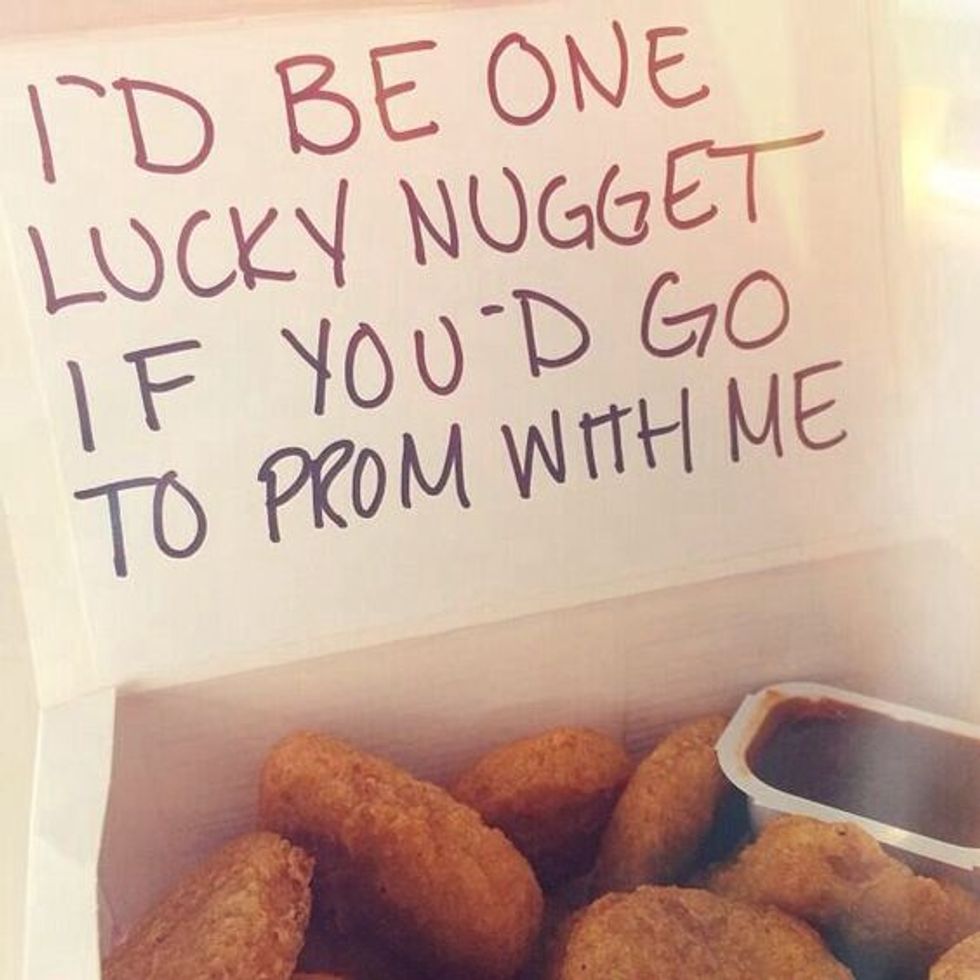 I'D BE ONE
LUCKY NUGGET
IF YOU'D GO
TO PROM WITH ME